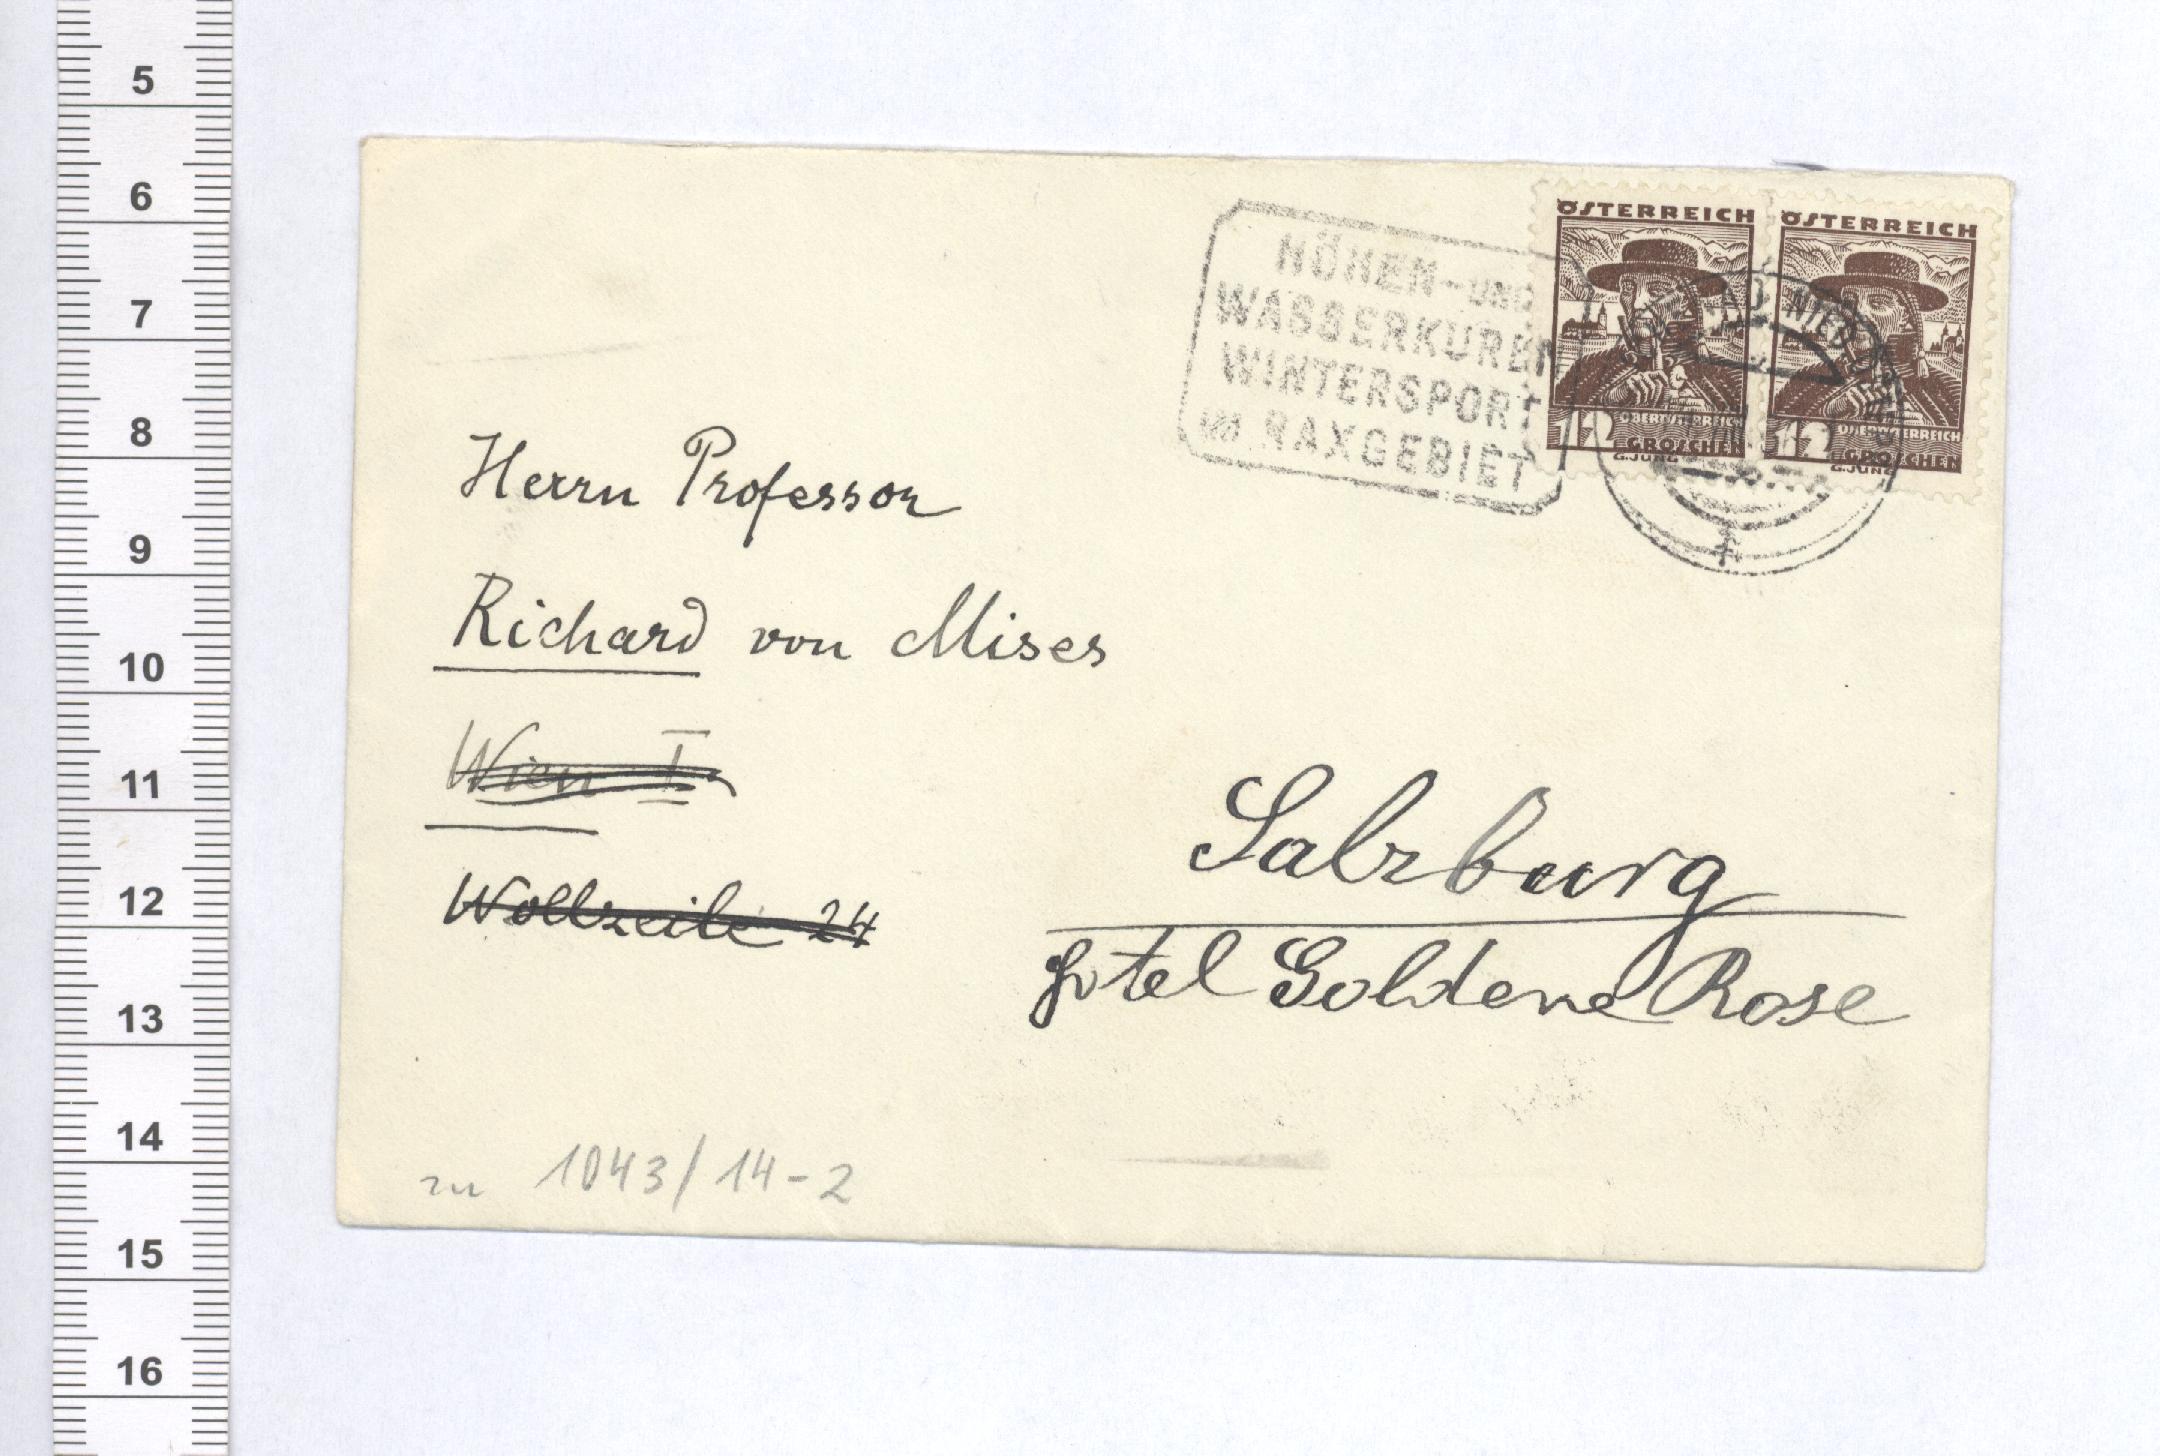 5
6
7
8
9
10
11
12
13
14
15
16
HÖHEN-UND
WASSERKUREN
WINTERSPORT
IM RAXGEBIET
ÖSTERREICH
12
OBERÖSTERREICH
GROSCHEN
G.JUNG
ÖSTERREICH
12
OBERÖSTERREICH
GROSCHEN
G.JUNG
Herrn Professor
Richard von Mises
Wien I.
Wollzeile 24
Salzburg
Hotel Goldene Rose
zu 1043/14-2